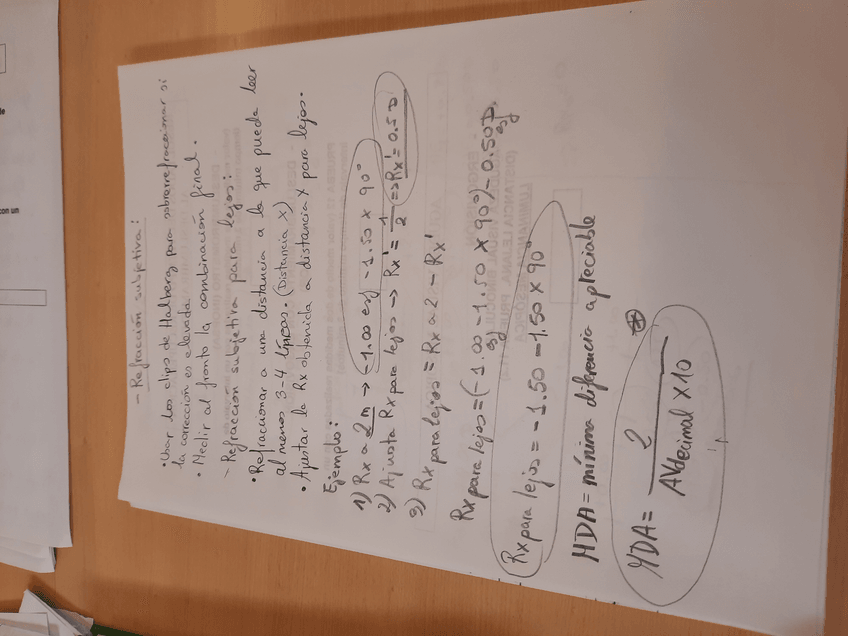 - Refracción subjetiva:
• Usar los clips de Halberg para sobrerrefraccionar si
la corrección es elevada.
• Medir al fronto la combinación final.
- Refracción subjetiva para lejos:
• Refraccionar a una distancia a la que pueda leer
al menos 3-4 líneas. (Distancia X)
• Ajustar la Rx obtenida a distancia X para lejos.
Ejemplo:
1) Rx a 2m → -1.00 esf -1.50 x 90°
2) Ajusta Rx para lejos → Rx' = 1/2 => Rx' = 0.5D
3) Rx para lejos = Rx a 2 - Rx'
Rx para lejos = (-1.00 esf -1.50 x 90°) - 0.50D esf
Rx para lejos = -1.50 -1.50 x 90°
MDA = mínima diferencia apreciable
MDA = 2 / AVdecimal x 10
con un